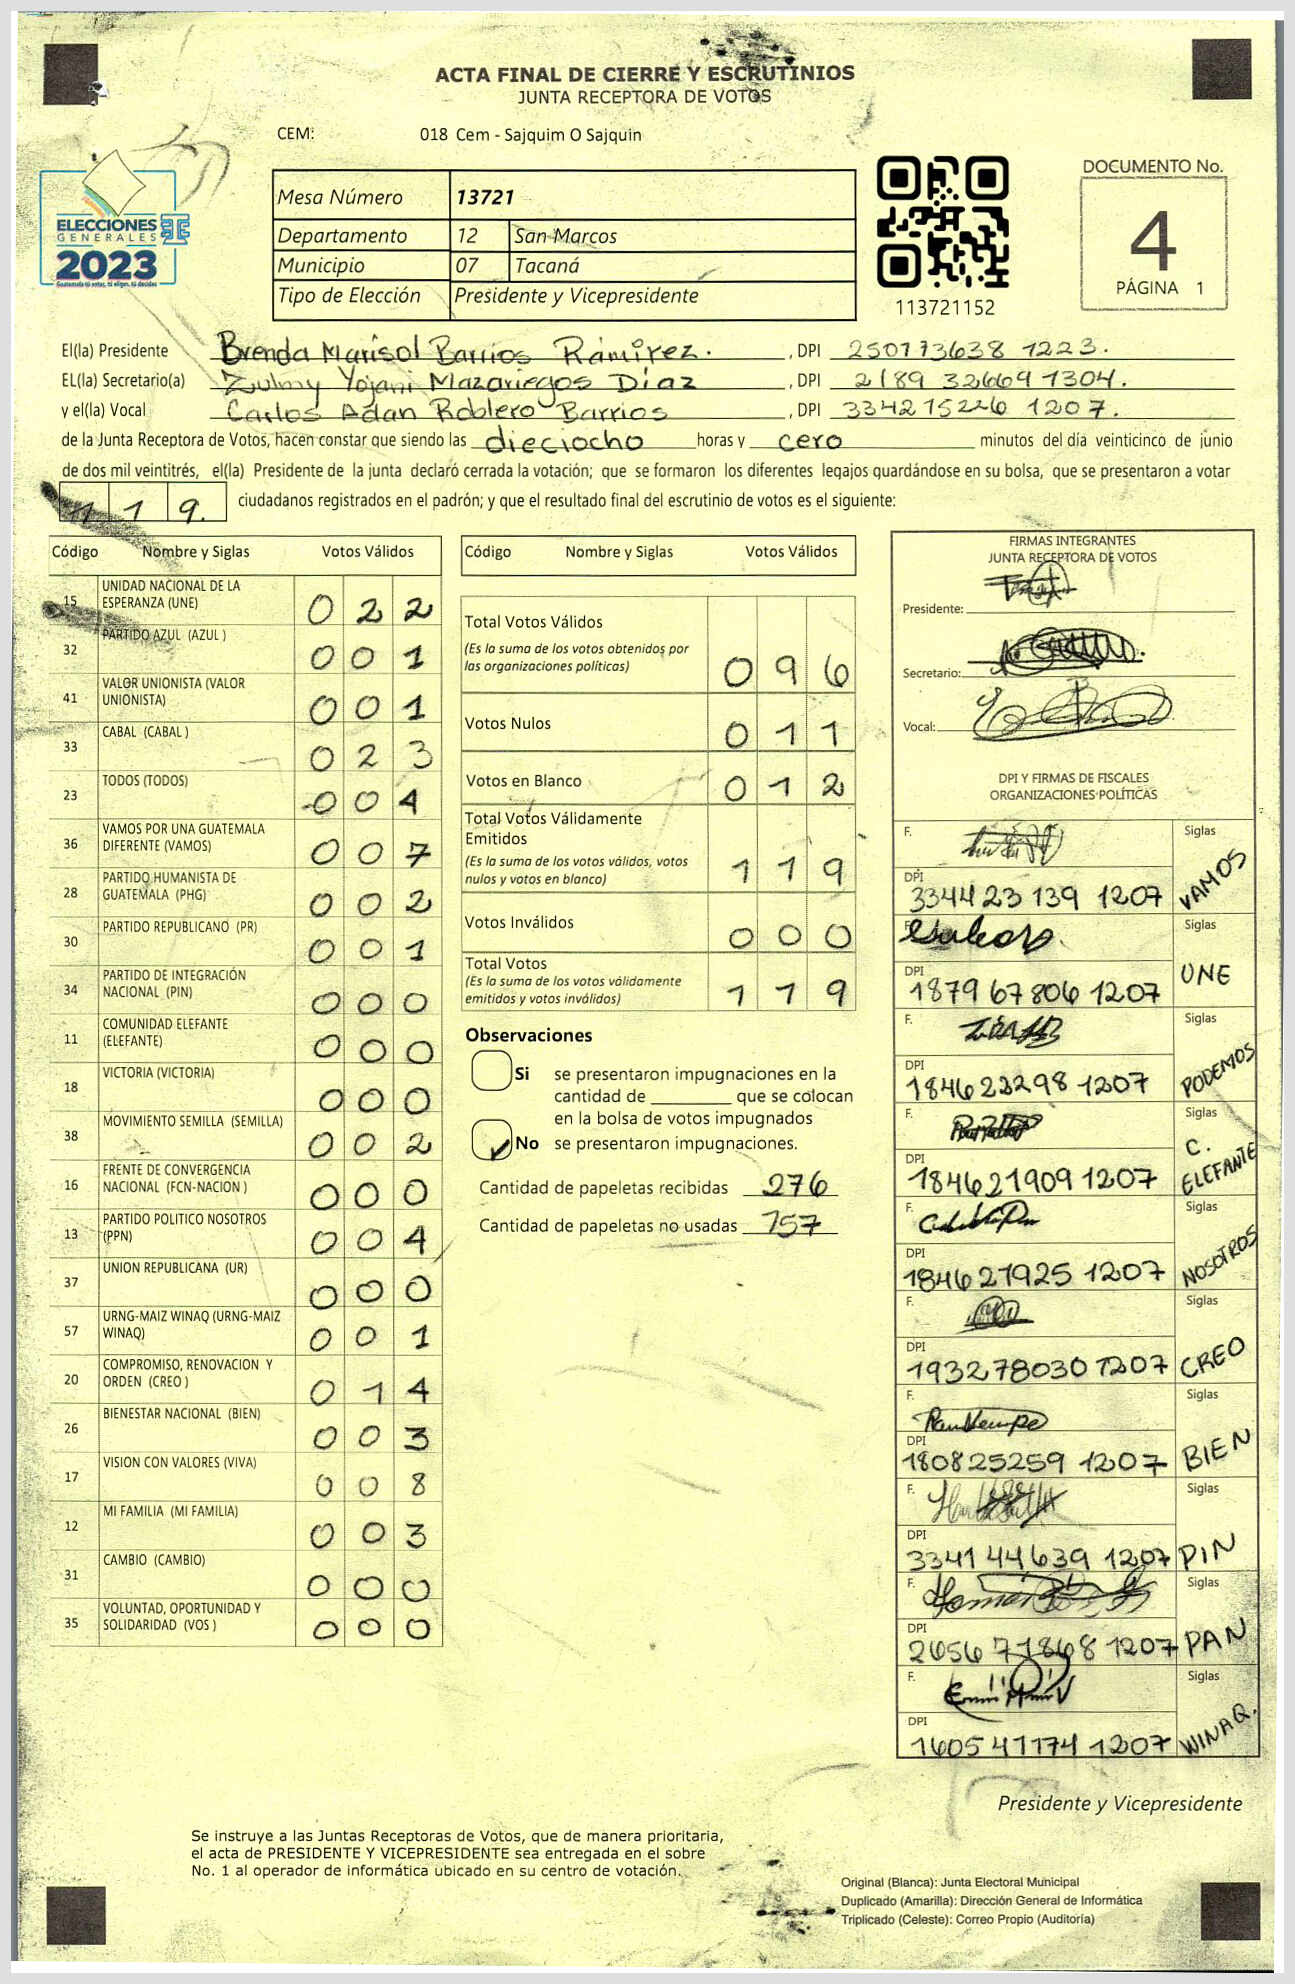 ACTA FINAL DE CIERRE Y ESCRUTINIOS
JUNTA RECEPTORA DE VOTOS
CEM: 018 Cem - Sajquim O Sajquin
ELECCIONES
GENERALES
2023
Guatemala tú votas, tú eliges, tú decides
Mesa Número 13721
Departamento 12 San Marcos
Municipio 07 Tacaná
Tipo de Elección Presidente y Vicepresidente
113721152
DOCUMENTO No.
4
PÁGINA 1
El(la) Presidente Brenda Marisol Barrios Ramírez. , DPI 250173638 1223.
EL(la) Secretario(a) Zulmy Yojani Mazariegos Díaz , DPI 2189 32669 1304.
y el(la) Vocal Carlos Adan Roblero Barrios , DPI 334215226 1207.
de la Junta Receptora de Votos, hacen constar que siendo las dieciocho horas y cero minutos del día veinticinco de junio
de dos mil veintitrés, el(la) Presidente de la junta declaró cerrada la votación; que se formaron los diferentes legajos guardándose en su bolsa, que se presentaron a votar
119. ciudadanos registrados en el padrón; y que el resultado final del escrutinio de votos es el siguiente:
Código Nombre y Siglas Votos Válidos
15 UNIDAD NACIONAL DE LA ESPERANZA (UNE) 0 2 2
32 PARTIDO AZUL (AZUL ) 0 0 1
41 VALOR UNIONISTA (VALOR UNIONISTA) 0 0 1
33 CABAL (CABAL ) 0 2 3
23 TODOS (TODOS) 0 0 4
36 VAMOS POR UNA GUATEMALA DIFERENTE (VAMOS) 0 0 7
28 PARTIDO HUMANISTA DE GUATEMALA (PHG) 0 0 2
30 PARTIDO REPUBLICANO (PR) 0 0 1
34 PARTIDO DE INTEGRACIÓN NACIONAL (PIN) 0 0 0
11 COMUNIDAD ELEFANTE (ELEFANTE) 0 0 0
18 VICTORIA (VICTORIA) 0 0 0
38 MOVIMIENTO SEMILLA (SEMILLA) 0 0 2
16 FRENTE DE CONVERGENCIA NACIONAL (FCN-NACION ) 0 0 0
13 PARTIDO POLITICO NOSOTROS (PPN) 0 0 4
37 UNION REPUBLICANA (UR) 0 0 0
57 URNG-MAIZ WINAQ (URNG-MAIZ WINAQ) 0 0 1
20 COMPROMISO, RENOVACION Y ORDEN (CREO ) 0 1 4
26 BIENESTAR NACIONAL (BIEN) 0 0 3
17 VISION CON VALORES (VIVA) 0 0 8
12 MI FAMILIA (MI FAMILIA) 0 0 3
31 CAMBIO (CAMBIO) 0 0 0
35 VOLUNTAD, OPORTUNIDAD Y SOLIDARIDAD (VOS ) 0 0 0
Código Nombre y Siglas Votos Válidos
Total Votos Válidos 0 9 6
(Es la suma de los votos obtenidos por
las organizaciones políticas)
Votos Nulos 0 1 1
Votos en Blanco 0 1 2
Total Votos Válidamente
Emitidos 1 1 9
(Es la suma de los votos válidos, votos
nulos y votos en blanco)
Votos Inválidos 0 0 0
Total Votos 1 1 9
(Es la suma de los votos válidamente
emitidos y votos inválidos)
Observaciones
Si se presentaron impugnaciones en la
cantidad de ________ que se colocan
en la bolsa de votos impugnados
No se presentaron impugnaciones.
Cantidad de papeletas recibidas 276
Cantidad de papeletas no usadas 157
FIRMAS INTEGRANTES
JUNTA RECEPTORA DE VOTOS
Presidente:
Secretario:
Vocal:
DPI Y FIRMAS DE FISCALES
ORGANIZACIONES POLÍTICAS
F. Siglas VAMOS
DPI 3344 23 139 1207
F. Siglas UNE
DPI 1879 67806 1207
F. Siglas PODEMOS
DPI 184623298 1207
F. Siglas C. ELEFANTE
DPI 184621909 1207
F. Siglas NOSOTROS
DPI 184621925 1207
F. Siglas CREO
DPI 193278030 1207
F. Siglas BIEN
DPI 180825259 1207
F. Siglas PIN
DPI 3341 44639 1207
F. Siglas PAN
DPI 2656 71868 1207
F. Siglas WINAQ.
DPI 1605 41174 1207
Presidente y Vicepresidente
Se instruye a las Juntas Receptoras de Votos, que de manera prioritaria,
el acta de PRESIDENTE Y VICEPRESIDENTE sea entregada en el sobre
No. 1 al operador de informática ubicado en su centro de votación.
Original (Blanca): Junta Electoral Municipal
Duplicado (Amarilla): Dirección General de Informática
Triplicado (Celeste): Correo Propio (Auditoría)